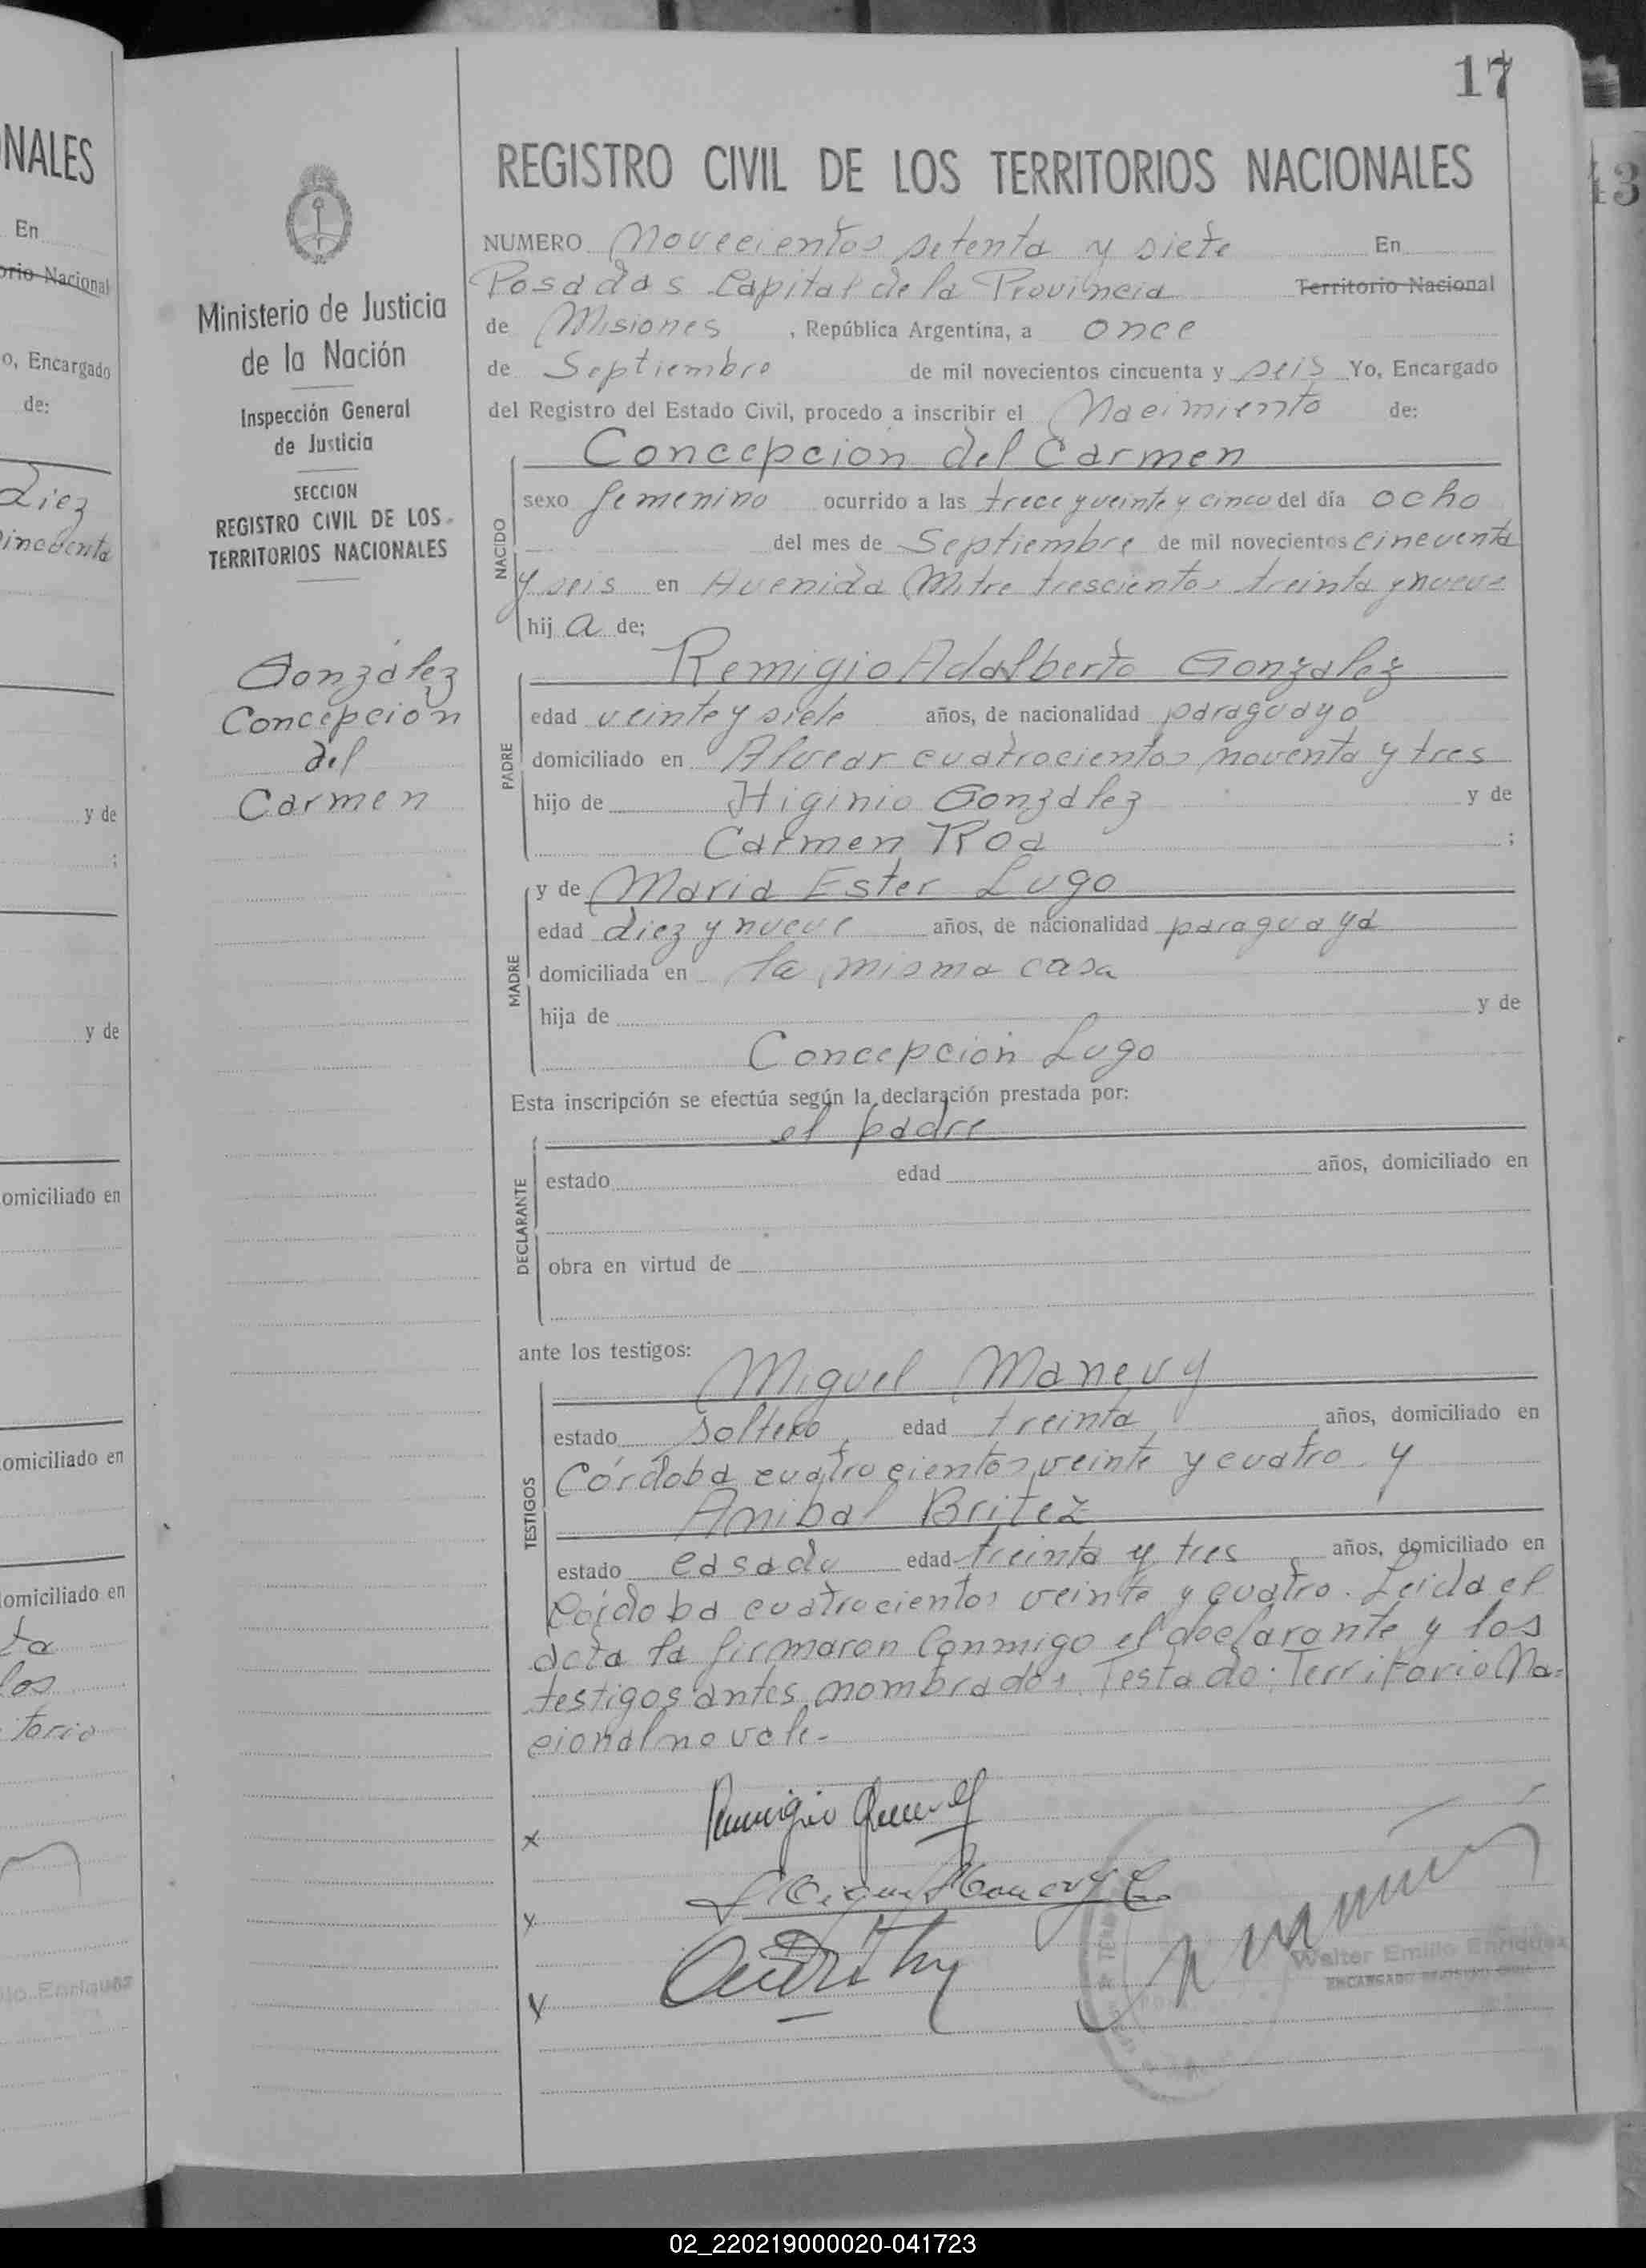 17
NALES
En
orio Nacional
o, Encargado
de:
Diez
y de
;
y de
omiciliado en
omiciliado en
omiciliado en
ta
los
torio
lo Enriquez
43
Ministerio de Justicia
de la Nación
Inspección General
de Justicia
SECCION
REGISTRO CIVIL DE LOS
TERRITORIOS NACIONALES
González
Concepción
del
Carmen
REGISTRO CIVIL DE LOS TERRITORIOS NACIONALES
NUMERO Novecientos setenta y siete En
Posadas Capital de la Provincia Territorio Nacional
de Misiones , República Argentina, a once
de Septiembre de mil novecientos cincuenta y seis Yo, Encargado
del Registro del Estado Civil, procedo a inscribir el Nacimiento de:
Concepcion del Carmen
NACIDO
sexo femenino ocurrido a las trece y veinte y cinco del día ocho
del mes de Septiembre de mil novecientos cincuenta
y seis en Avenida Mitre trescientos treinta y nueve
hij a de;
Remigio Adalberto Gonzalez
PADRE
edad veinte y siete años, de nacionalidad paraguayo
domiciliado en Alvear cuatrocientos noventa y tres
hijo de Higinio González y de
Carmen Roa ;
y de Maria Ester Lugo
MADRE
edad diez y nueve años, de nacionalidad paraguaya
domiciliada en la misma casa
hija de y de
Concepcion Lugo
Esta inscripción se efectúa según la declaración prestada por:
el padre
DECLARANTE
estado edad años, domiciliado en
obra en virtud de
ante los testigos:
Miguel Manevy
TESTIGOS
estado soltero edad treinta años, domiciliado en
Córdoba cuatrocientos veinte y cuatro y
Anibal Britez
estado casado edad treinta y tres años, domiciliado en
Córdoba cuatrocientos veinte y cuatro. Leida el
acta la firmaron conmigo el declarante y los
testigos antes nombrados. Testado: Territorio Na=
cional no vale.-
x Remigio
x
x
Walter Emilio Enriquez
ENCARGADO REGISTRO CIVIL
02_220219000020-041723